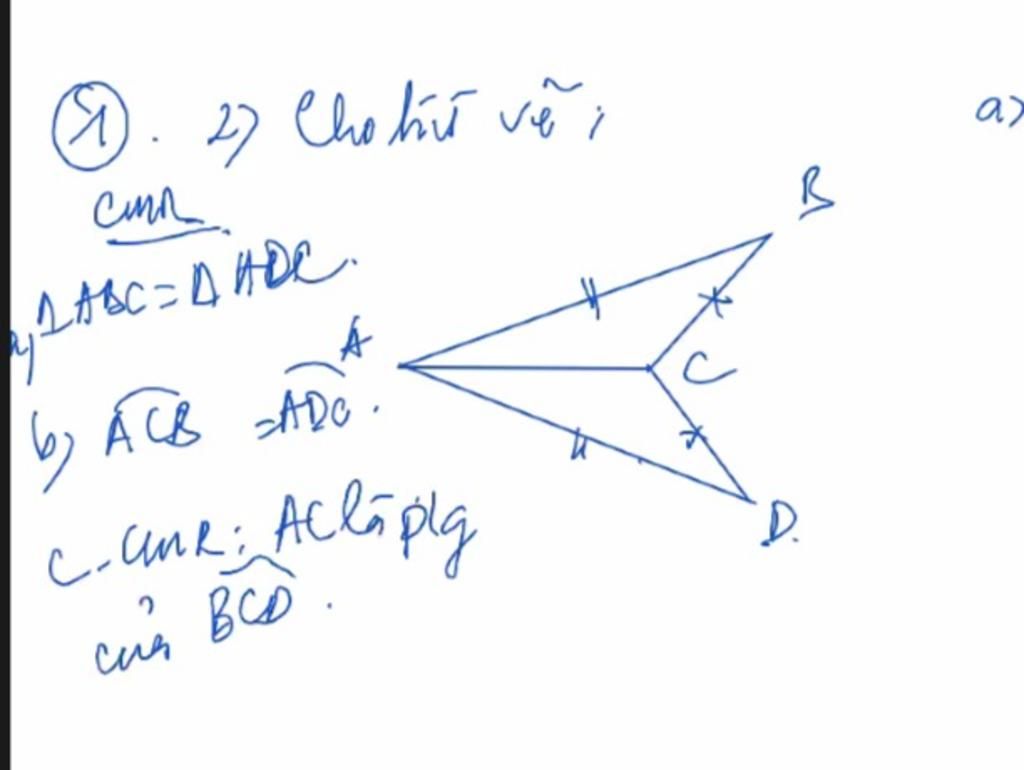 2) Cho hĩnh vẽ;
a)
CMR
a) ΔABC = ΔADC.
b) ACB = ADC.
C. CMR: AC là p/g
của BCD.
A
B
C
D.